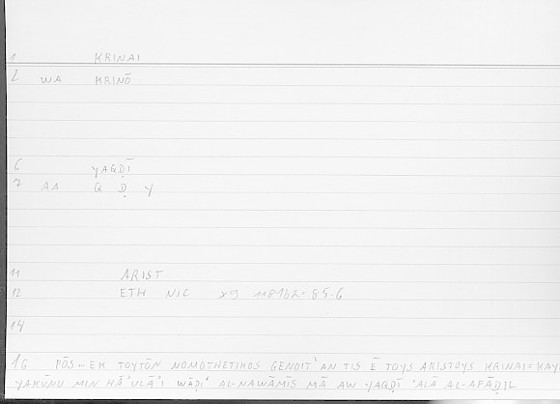 1 KRINAI
2 WA KRINŌ
6 YAQḌĪ
7 AA Q Ḍ Y
11 ARIST
12 ETH NIC
14
16 PŌS - EK TOYTŌN NOMOTHETIKOS GENOIT' AN TIS Ē TOYS ARISTOYS KRINAI =
YAKŪNU MIN HĀ'ULĀ'I WĀḌI' AL-NAWĀMĪS MĀ AW YAQḌĪ 'ALĀ AL-AFĀḌIL